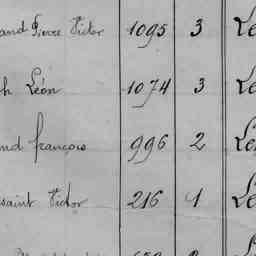 and Pierre Victor 1095 3 Le
h Léon 1074 3 Le
nd françois 996 2 Le
saint Victor 216 1 Le